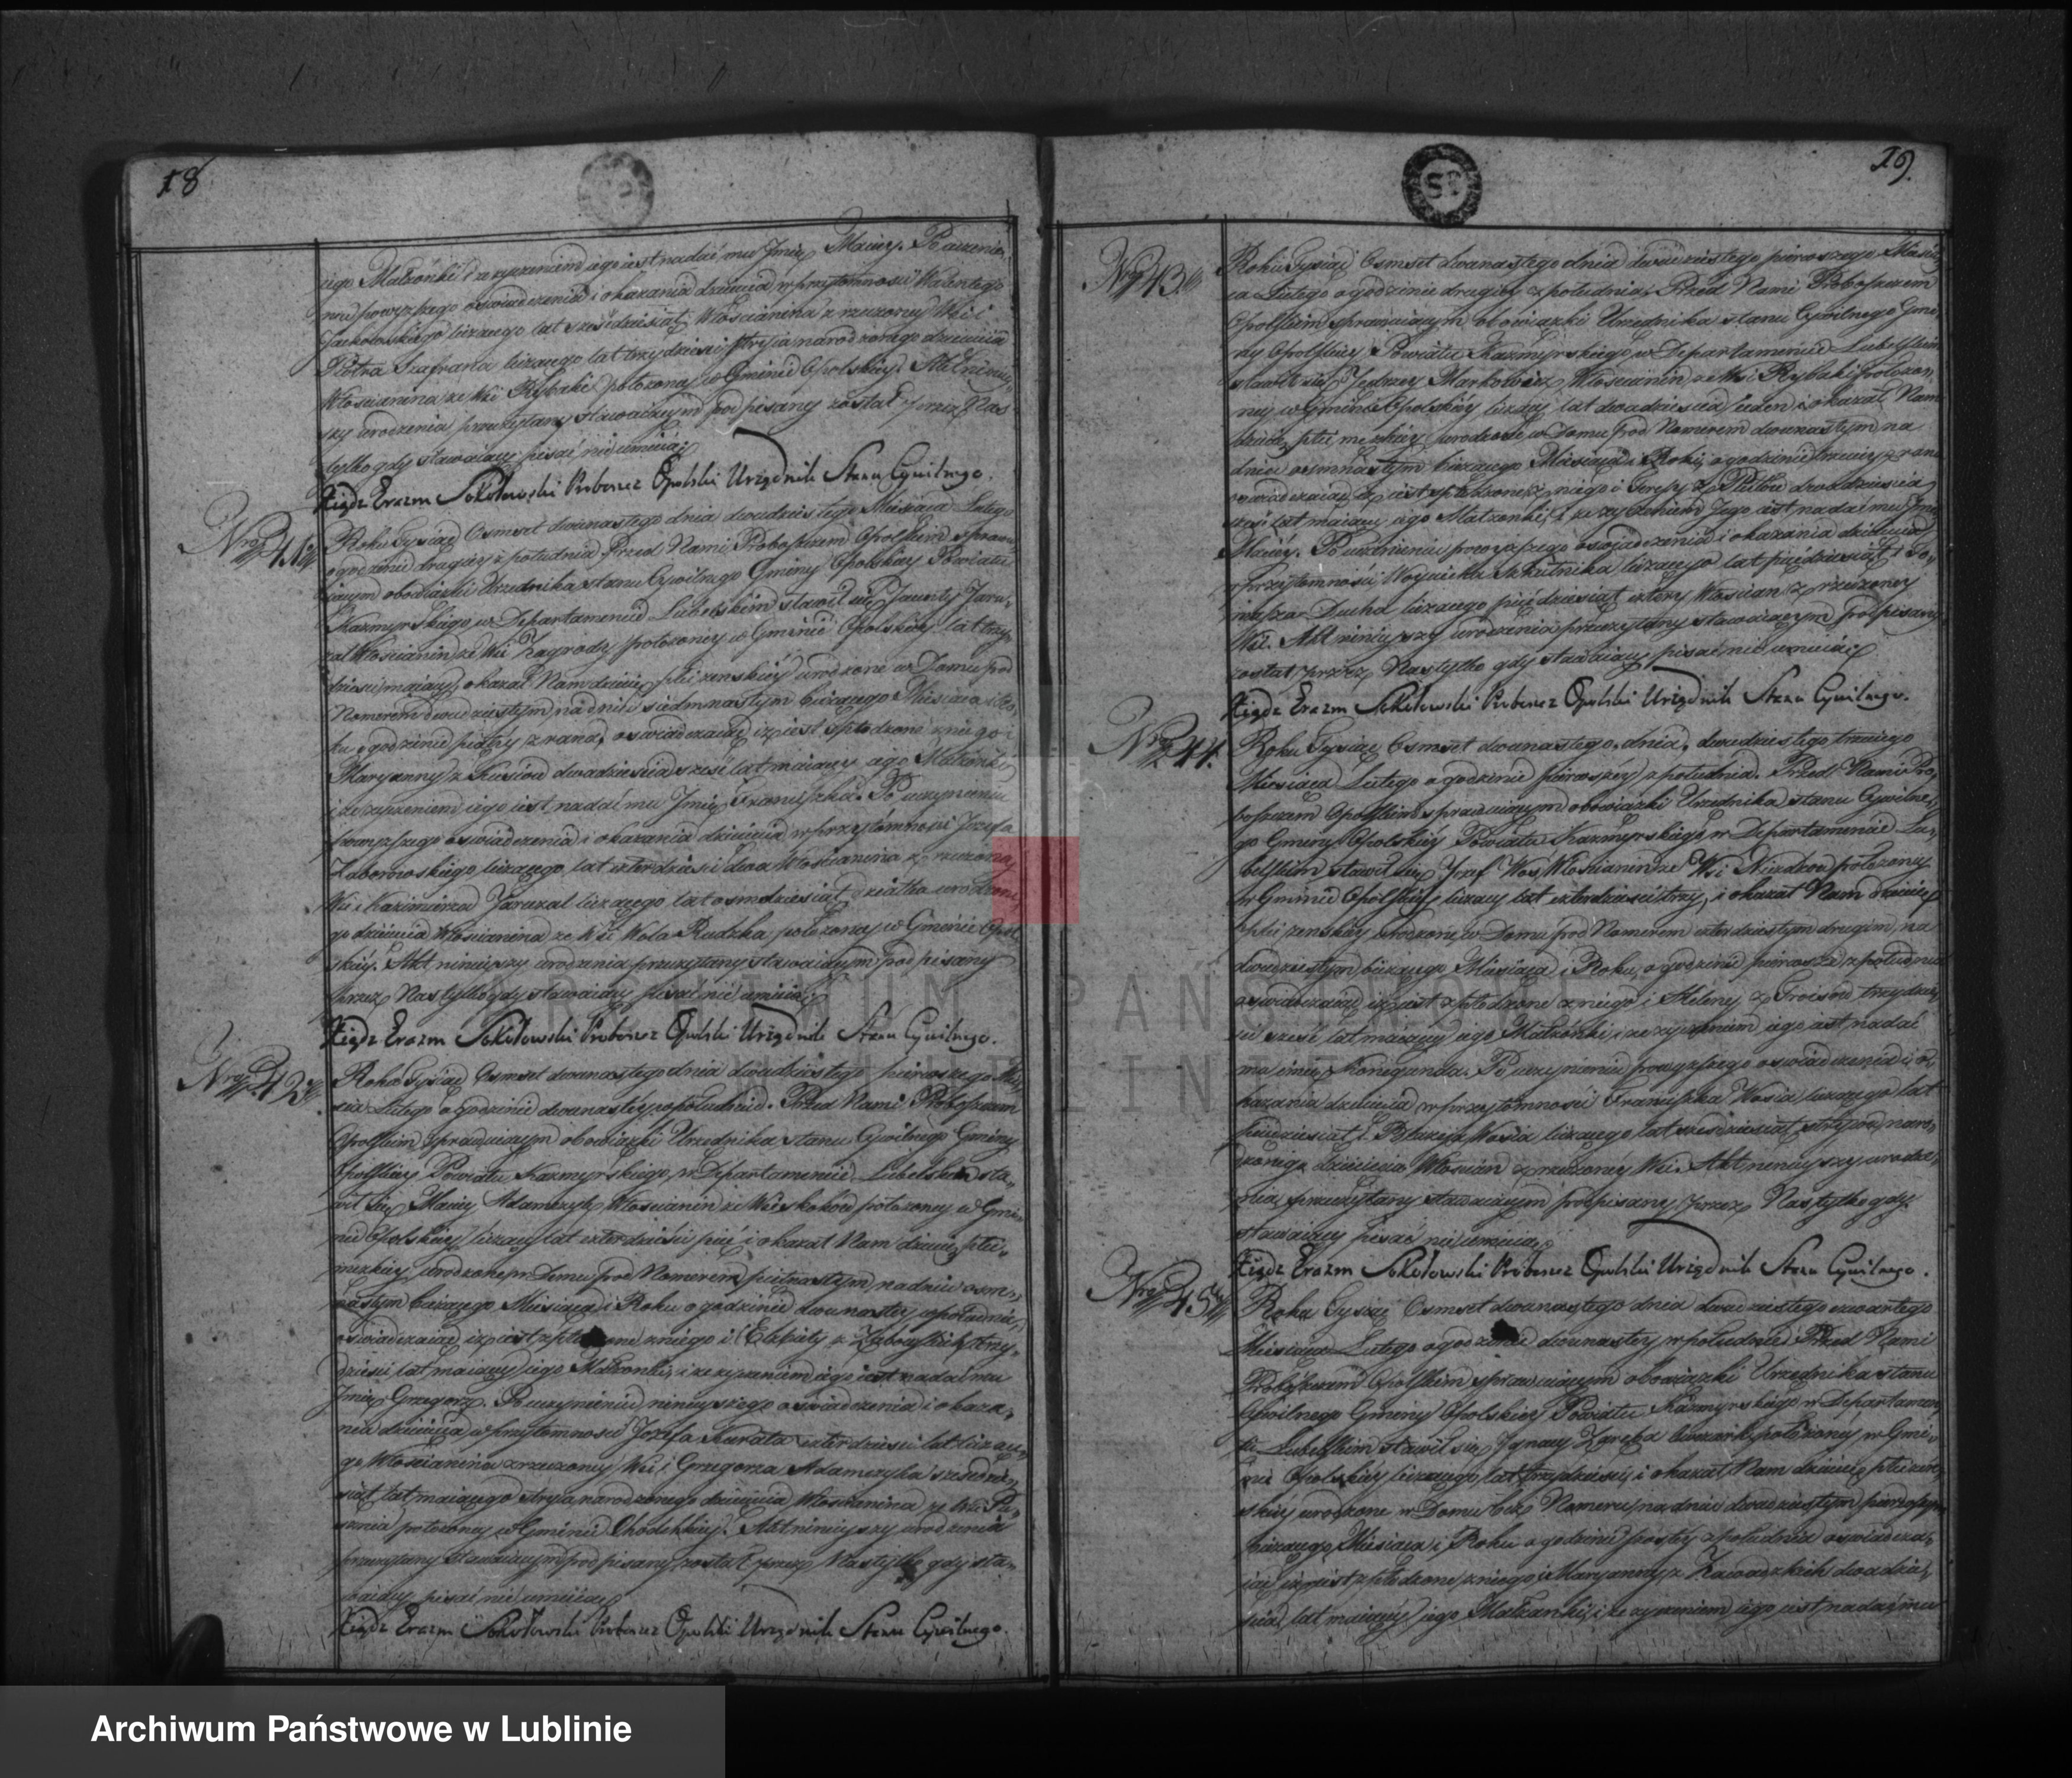 18
iego Małżonki i że życzeniem iego iest nadać mu Jmię Maciey. Po uczynie-
niu powyższego oświadczenia i okazania dziecięcia w przytomności Walentego
liczącego lat sześćdziesiąt Włościanina z rzeczoney Wsi i
Piotra Szafrana liczącego lat trzydzieści stryia narodzonego dziecięcia
Włościanina ze Wsi Rybaki położoney w Gminie Opolskiey. Akt niniey-
szy urodzenia przeczytany stawaiącym podpisany został przez Nas
tylko gdy stawaiący pisać nie umieią.
Xiądz Erazm Sokołowski Proboszcz Opolski Urzędnik Stanu Cywilnego.
Nro 41.
Roku Tysiąc Osmset dwunastego dnia dwudziestego Miesiąca Lutego
o godzinie drugiey z południa Przed Nami Proboszczem Opolskim sprawu-
iącym obowiązki Urzędnika stanu Cywilnego Gminy Opolskiey Powiatu
Kazmyrskiego w Departamencie Lubelskim stawił się Jaruzal
Włościanin ze Wsi Zagrody położoney w Gminie Opolskiey lat trzy-
dzieści maiący, okazał Nam dziecię płci żenskiey urodzone w Domu pod
Nomerem dwudziestym na dniu siedmnastym bieżącego Miesiąca i Ro-
ku o godzinie piątey z rana, oświadczaiąc iż iest spłodzone z niego i
Maryanny z Kusiow dwadzieścia sześć lat maiącey iego Małżonki
i że życzeniem iego iest nadać mu Jmię Franciszka. Po uczynieniu
powyższego oświadczenia i okazania dziecięcia w przytomności Jozefa
Zaborowskiego liczącego lat czterdzieści dwa Włościanina z rzeczoney
Wsi i Kazimierza Jaruzal liczącego lat osmdziesiąt dziadka urodzone-
go dziecięcia Włościanina ze Wsi Wola Rudzka położoney w Gminie Opol-
skiey. Akt ninieyszy urodzenia przeczytany stawaiącym podpisany
przez Nas tylko gdy stawaiący pisać nie umieią.
Xiądz Erazm Sokołowski Proboszcz Opolski Urzędnik Stanu Cywilnego.
Nro 42.
Roku Tysiąc Osmset dwunastego dnia dwudziestego pierwszego Mie-
siąca Lutego o godzinie dwunastey w południe. Przed Nami Proboszczem
Opolskim sprawuiącym obowiązki Urzędnika stanu Cywilnego Gminy
Opolskiey Powiatu Kazmyrskiego w Departamencie Lubelskim sta-
wił się Maciey Adamczyk Włościanin ze Wsi położoney w Gmi-
nie Opolskiey liczący lat czterdzieści pięć i okazał Nam dziecię płci
męzkiey urodzone w Domu pod Nomerem piętnastym na dniu osm-
nastym bieżącego Miesiąca i Roku o godzinie dwunastey w południe,
oświadczaiąc iż iest spłodzone z niego i Elżbiety z trzy-
dzieści lat maiącey iego Małżonki, i że życzeniem iego iest nadać mu
Jmię Grzegorz. Po uczynieniu ninieyszego oświadczenia i okaza-
nia dziecięcia w przytomności Jozefa Kurata czterdzieści lat liczące-
go Włościanina z rzeczoney Wsi i Grzegorza Adamczyka sześćdzie-
siąt lat maiącego stryia narodzonego dziecięcia Włościanina ze Wsi
położoney w Gminie Chodelskiey. Akt ninieyszy urodzenia
przeczytany stawaiącym podpisany został przez Nas tylko gdy sta-
waiący pisać nie umieią.
Xiądz Erazm Sokołowski Proboszcz Opolski Urzędnik Stanu Cywilnego.
19.
Nro 43
Roku Tysiąc Osmset dwunastego dnia dwudziestego pierwszego Miesią-
ca Lutego o godzinie drugiey z południa. Przed Nami Proboszczem
Opolskim sprawuiącym obowiązki Urzędnika stanu Cywilnego Gmi-
ny Opolskiey Powiatu Kazmyrskiego w Departamencie Lubelskim
stawił się Jędrzey Markowicz Włościanin ze Wsi Rybaki położo-
ney w Gminie Opolskiey liczący lat dwadzieścia jeden i okazał Nam
dziecię płci męzkiey urodzone w Domu pod Nomerem dwunastym na
dniu osmnastym bieżącego Miesiąca i Roku, o godzinie trzeciey z rana
oświadczaiąc iż iest spłodzone z niego i Teressy z dwadzieścia
sześć lat maiącey iego Małżonki, i że życzeniem Jego iest nadać mu Jmię
Maciey. Po uczynieniu powyższego oświadczenia i okazania dziecięcia
w przytomności Woyciecha Szkutnika liczącego lat pięćdziesiąt i To-
masza Ducha liczącego pięćdziesiąt cztery Włościan z rzeczoney
Wsi. Akt ninieyszy urodzenia przeczytany stawaiącym podpisany
został przez Nas tylko gdy stawaiący pisać nie umieią.
Xiądz Erazm Sokołowski Proboszcz Opolski Urzędnik Stanu Cywilnego.
Nro 44.
Roku Tysiąc Osmset dwunastego, dnia, dwudziestego trzeciego
Miesiąca Lutego o godzinie pierwszey z południa. Przed Nami Pro-
boszczem Opolskim sprawuiącym obowiązki Urzędnika stanu Cywilne-
go Gminy Opolskiey Powiatu Kazmyrskiego w Departamencie Lu-
belskim stawił się Jozef Woś Włościanin ze Wsi Niezdow położoney
w Gminie Opolskiey liczący lat czterdzieści trzy, i okazał Nam dziecię
płci żenskiey urodzone w Domu pod Nomerem czterdziestym drugim, na
dwudziestym bieżącego Miesiąca i Roku, o godzinie pierwszey z południa
oświadczaiąc iż iest spłodzone z niego i Heleny z trzydzie-
ści sześć lat maiącey iego Małżonki i że życzeniem iego iest nadać
mu imię Konegunda. Po uczynieniu powyższego oświadczenia i o-
kazania dziecięcia w przytomności Franciszka Wosia liczącego lat
pięćdziesiąt i Błażeja Wosia liczącego lat sześćdziesiąt stryiow naro-
dzonego dziecięcia Włościan z rzeczoney Wsi. Akt ninieyszy urodze-
nia, przeczytany stawaiącym podpisany przez Nas tylko gdy
stawaiący pisać nie umieią.
Xiądz Erazm Sokołowski Proboszcz Opolski Urzędnik Stanu Cywilnego.
Nro 45
Roku Tysiąc Osmset dwunastego dnia dwudziestego czwartego
Miesiąca Lutego o godzinie dwunastey w południe. Przed Nami
Proboszczem Opolskim sprawuiącym obowiązki Urzędnika stanu
Cywilnego Gminy Opolskiey Powiatu Kazmyrskiego w Departamen-
cie Lubelskim stawił się Jgnacy Zaręba położoney w Gmi-
nie Opolskiey liczącego lat trzydzieści, i okazał Nam dziecię płci żeń-
skiey urodzone w Domu bez Nomeru na dniu dwudziestym pierwszym
bieżącego Miesiąca i Roku o godzinie szostey z południa oświadcza-
iąc iż iest spłodzone z niego i Maryanny z Zawadzkich dwadzie-
ścia lat maiącey iego Małżonki, i że życzeniem iego iest nadać mu
ARCHIWUM PAŃSTWOWE
W LUBLINIE
Archiwum Państwowe w Lublinie